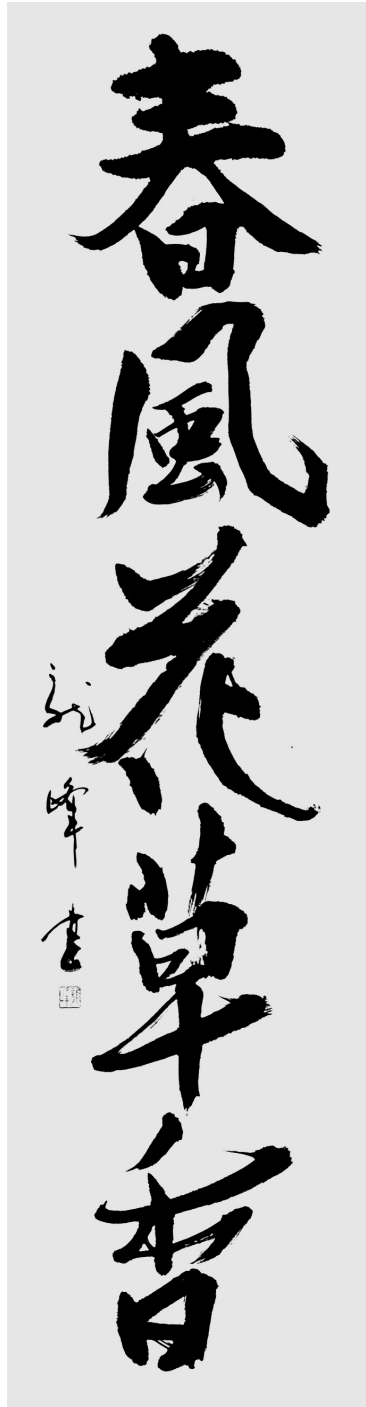 春風花草香
龍峰書